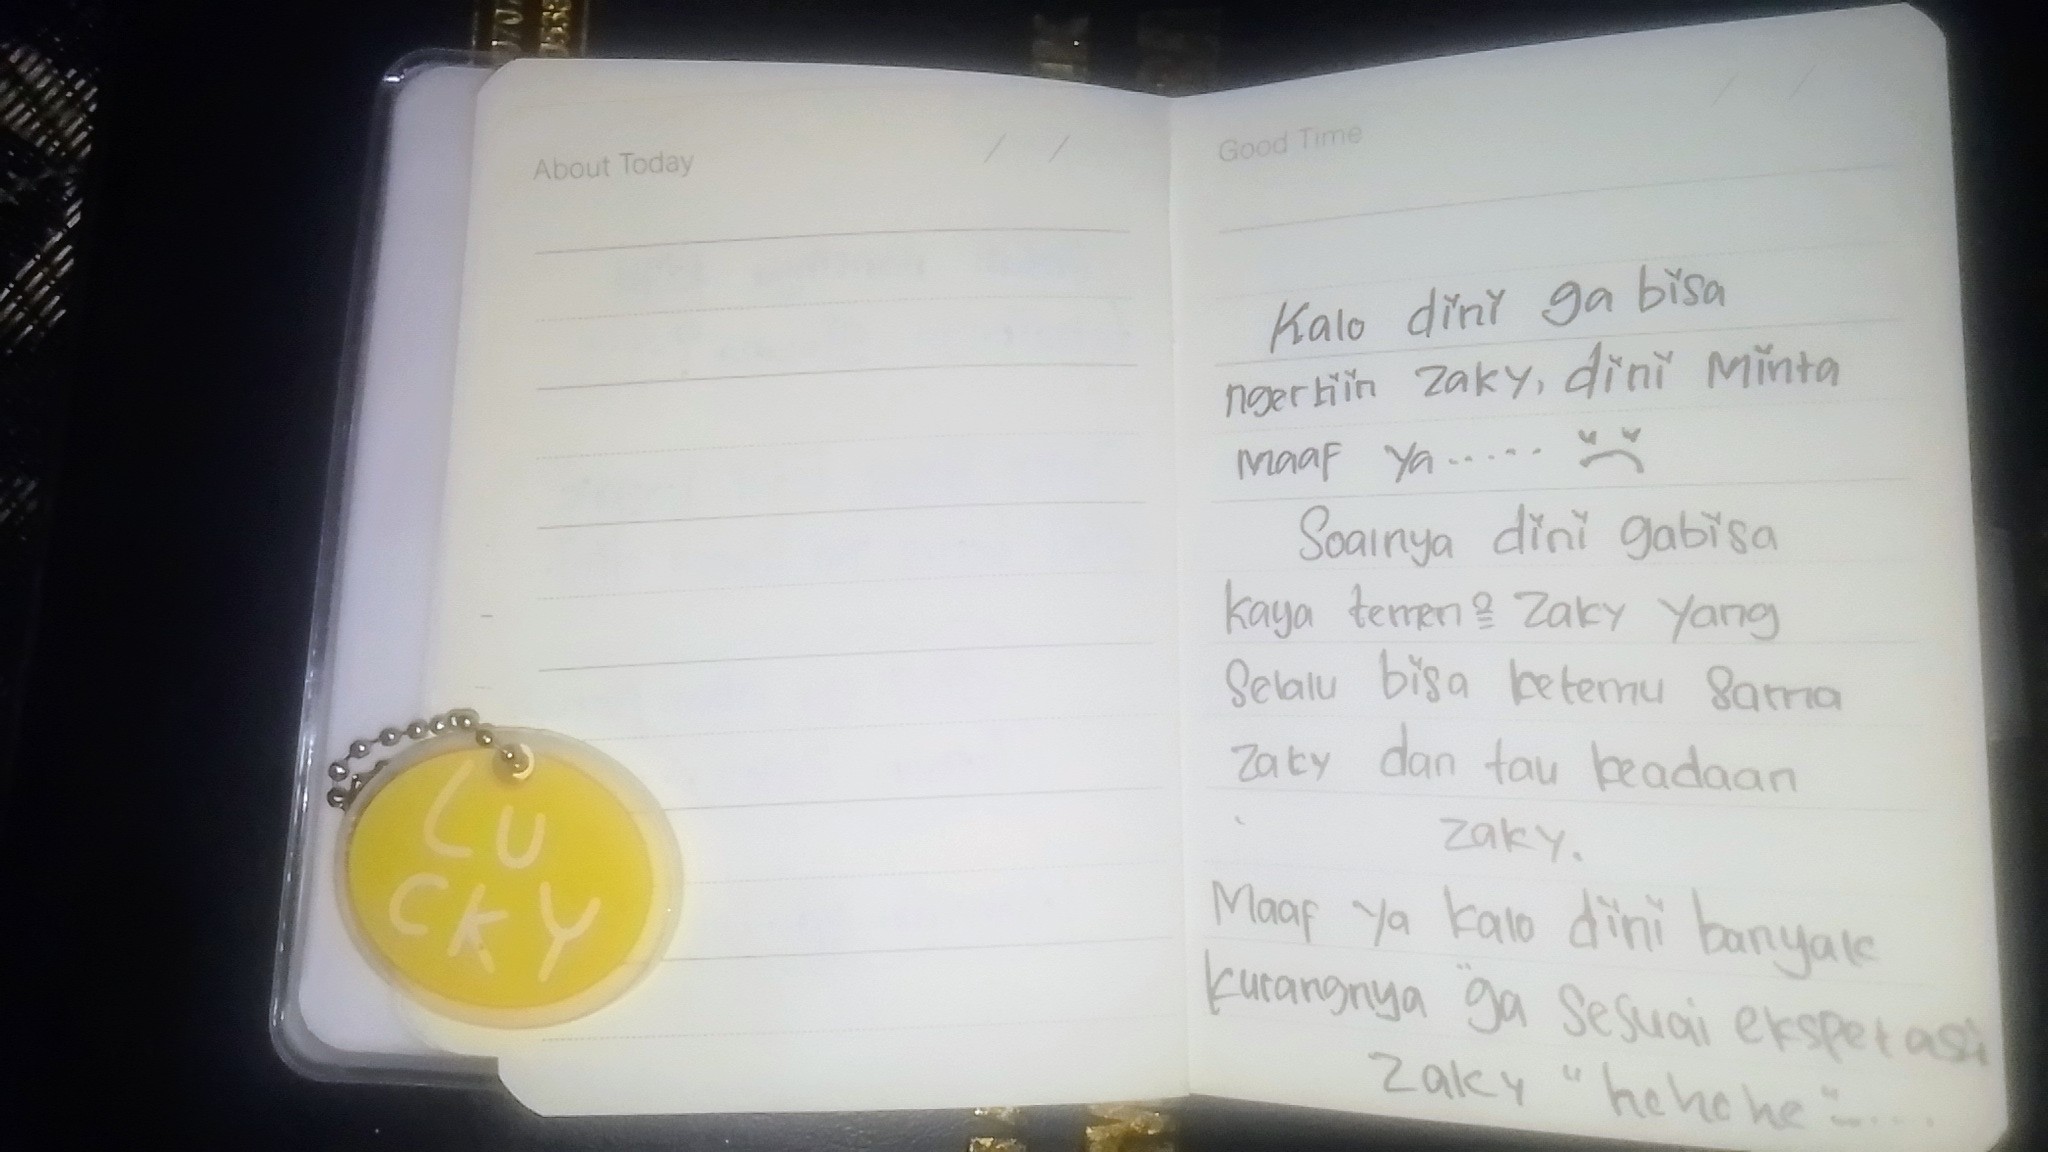 About Today / /
LU
CKY
Good Time / /
Kalo dini ga bisa
ngertiin Zaky, dini Minta
Maaf ya......
Soalnya dini gabisa
kaya temen2 Zaky yang
Selalu bisa ketemu Sama
Zaky dan tau keadaan
Zaky.
Maaf ya kalo dini banyak
kurangnya "ga sesuai ekspetasi
Zaky "hehehe".....